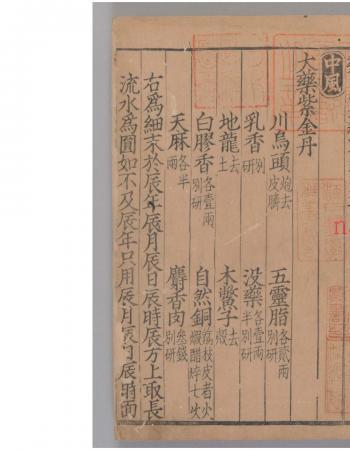 中風
大藥紫金丹
川烏頭炮去皮臍 五靈脂各貳兩別研
乳香別研 没藥各壹兩半別研
地龍去土 木鱉子去殻
白膠香各壹兩別研 自然銅煅醋淬七次
天麻各半兩 麝香肉叄錢別研
右為細末於辰年辰月辰日辰時辰方上取長
流水為圓如不及辰年只用辰月辰日辰時面